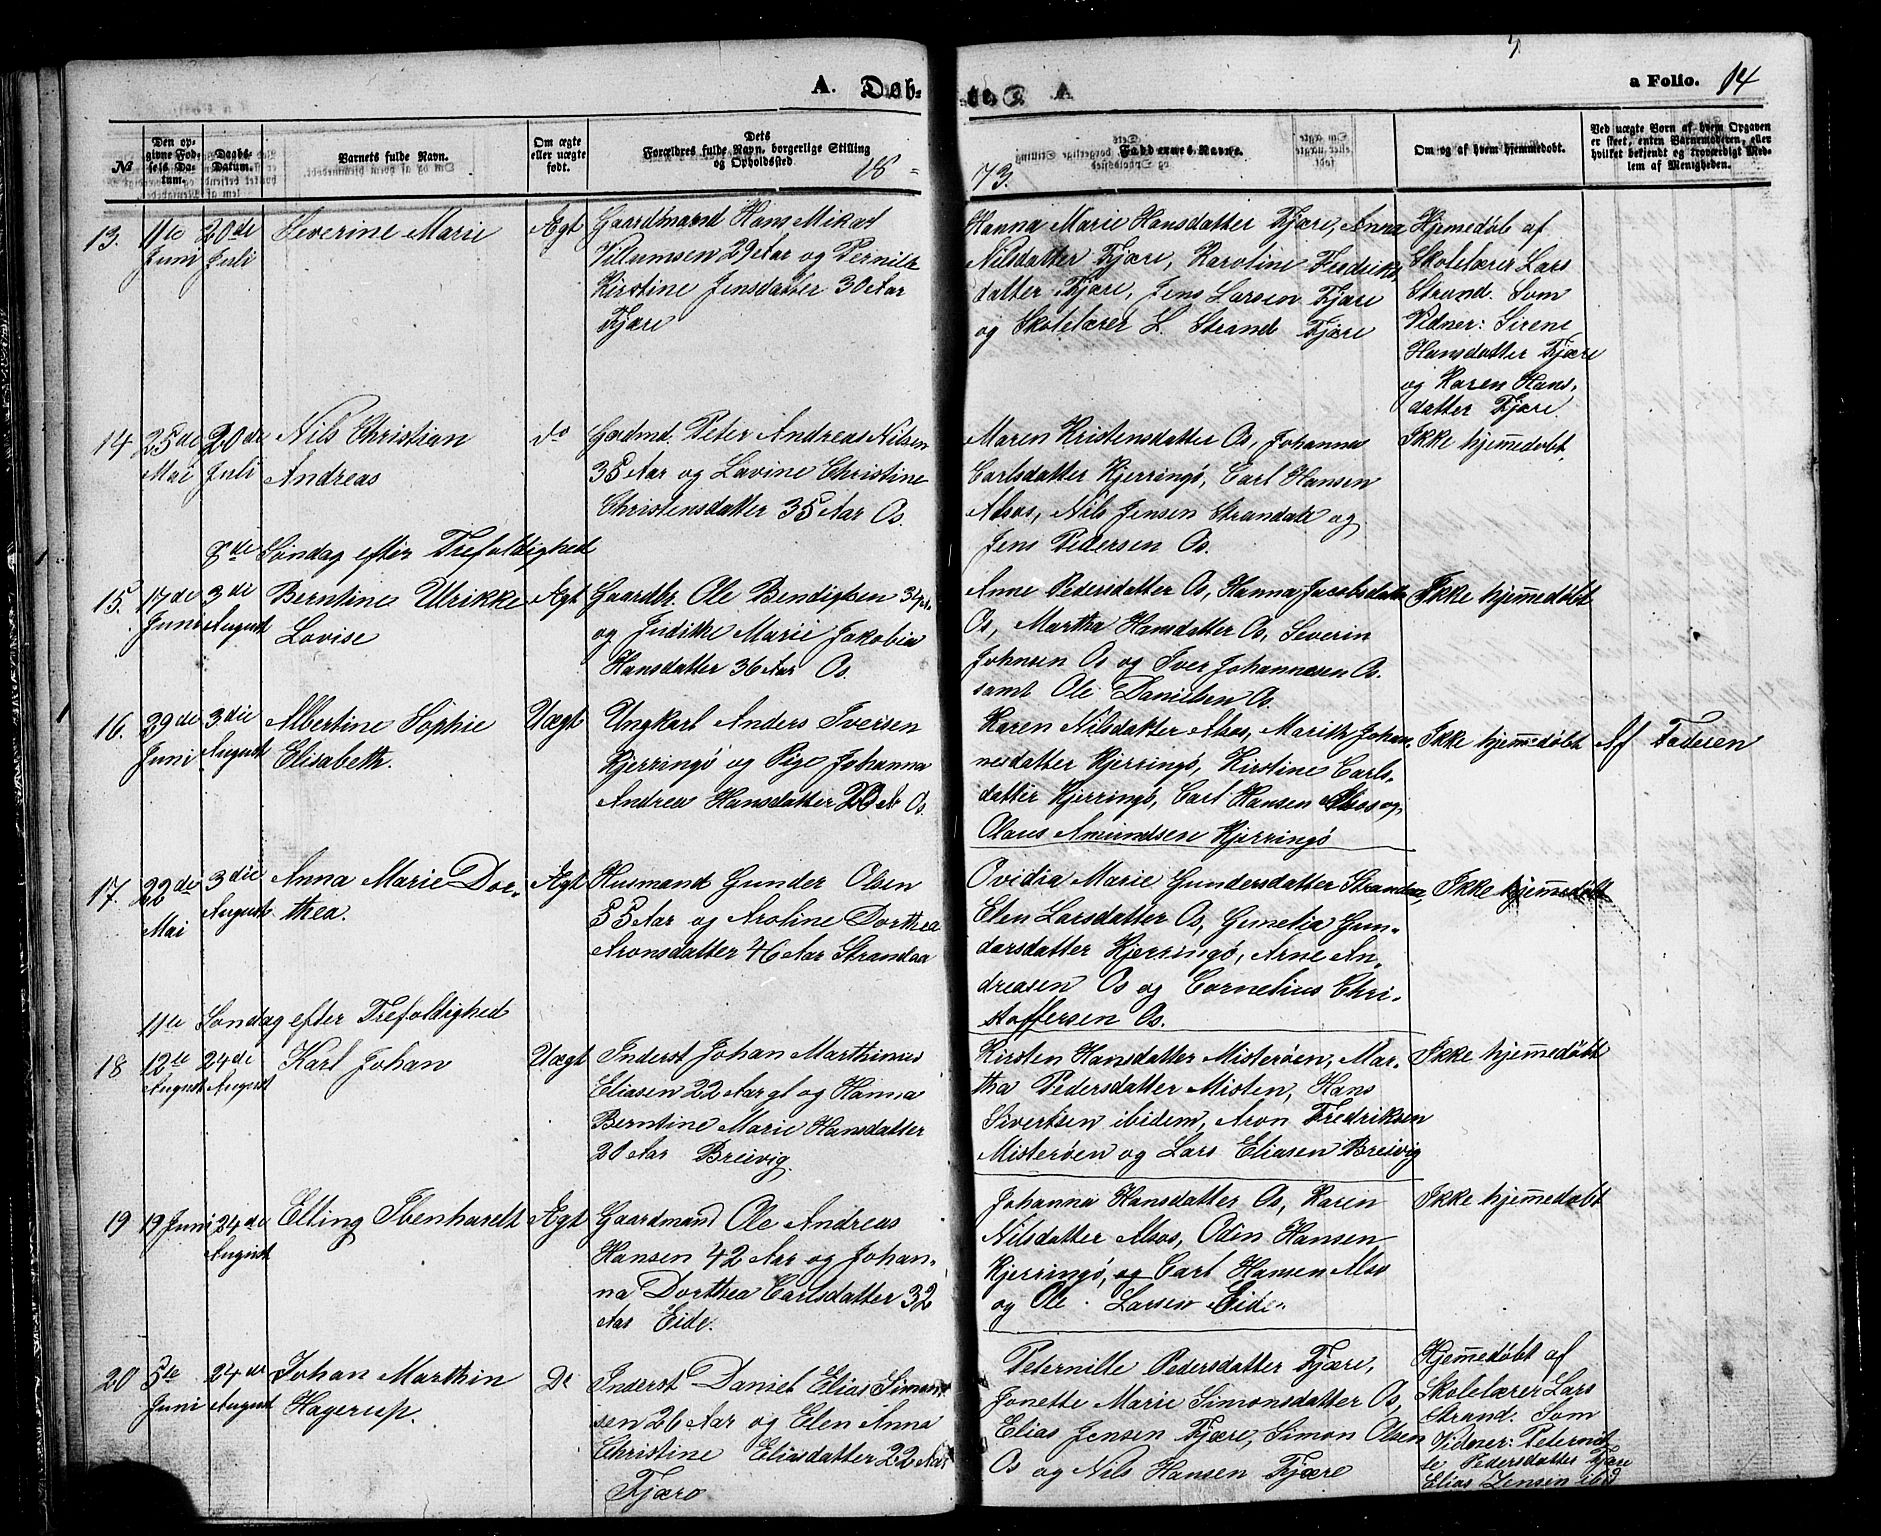 A. Døb-
te. A
a Folio. 14
№
Den op-
givne Fød-
sels Da-
tum.
Daabs-
Datum.
Barnets fulde Navn.
Om ægte
eller uægte
født.
Dets
Forældres fulde Navn, borgerlige Stilling
og Opholdssted.
18 =
73.
Faddernes Navne.
Om og af hvem hjemmedøbt.
Ved uægte Børn af hvem Opgaven
er skeet, enten Barnemoderen, eller
hvilket bekjendt og troværdigt Med-
lem af Menigheden.
13.
11te
Juni
20de
Juli
Severine Marie
Ægt
Gaardmand Hans Mikal
Villumsen 29 Aar og Pernille
Kirstine Jensdatter 30 Aar
Fjære
Hanna Marie Hansdatter Fjære, Anna
Nilsdatter Fjære, Karoline Fredriks
datter Fjære, Jens Larsen Fjære
og Skolelærer L. Strand Fjære
Hjemedøb af
Skolelærer Lars
Strand. Som
Vidner: Sirene
Hansdatter Fjære
og Karen Hans-
datter Fjære.
14
25de
Mai
20de
Juli
Nils Christian
Andreas
do
Gaardmd. Peter Andreas Nilsen
35 Aar og Lavine Christine
Christensdatter 35 Aar Os.
Maren Kristensdatter Os, Johanna
Carlsdatter Kjerringø, Carl Hansen
Alsos, Nils Jensen Strandaa og
Jens Pedersen Os.
Ikke hjemedobt.
8de Søndag efter Trefoldighed
15.
17de
Juni
3die
August
Berntine Ulrikke
Lovise
Ægt
Gaardbr. Ole Bendigtsen 34 Ar
og Judikke Marie Jakobia
Hansdatter 36 Aar Os.
Anne Pedersdatter Os, Hanna Jacobsdatter
Os, Martha Hansdatter Os, Severin
Johnsen Os og Iver Johannesen Os.
samt Ole Danielsen Os.
Ikke hjemedøbt
16.
29de
Juni
3die
August
Albertine Sophie
Elisabeth.
Uægt
Ungkarl Anders Iversen
Kjerringø og Pige Johanna
Andrea Hansdatter 23 Ar Os.
Karen Nilsdatter Alsos, Marith Johan-
nesdatter Kjerringø, Kirstine Carls-
datter Kjerringø, Carl Hansen Alsos og
Olaus Amundsen Kjerringø
Ikke hjemedøbt
Af Faderen
17.
22de
Mai
3die
August
Anna Marie Doe-
thea.
Ægt
Husmand Gunder Olsen
55 Aar og Aroline Dorthea
Aronsdatter 46 Aar Strandaa
Ovidia Marie Gundersdatter Strandaa,
Elen Larsdatter Os, Gunelia Gun-
dersdatter Kjerringø, Arne An-
dreasen Os og Cornelius Chri-
stoffersen Os.
Ikke hjemedøbt
11te Søndag efter Trefoldighed
18
12te
August
24de
August
Karl Johan
Uægt
Inderst Johan Marthinus
Eliasen 22 Aar gl og Hanna
Berntine Marie Hansdatter
20 Aar Breivig.
Kirsten Hansdatter Misterøen, Mar-
tha Pedersdatter Misten, Hans
Sivertsen ibidem, Aron Fredriksen
Misterøen og Lars Eliasen Breivig
Ikke hjemedøbt
19
19 Juni
24de
August
Elling Ibenhardt
Ægt
Gaardmand Ole Andreas
Hansen 42 Aar og Johan-
na Dorthea Carlsdatter 32
Aar Eide.
Johanna Hansdatter Os, Karen
Nilsdatter Alsos, Odin Hansen
Kjerringø, og Carl Hansen Alsos
og Ole Larsen Eide.
Ikke hjemedobt
20
5te
Juni
24de
August
Johan Marthin
Hagerup.
Do
Inderst Daniel Elias Simon-
sen 26 Aar og Elen Anna
Christine Eliasdatter 22 Aar
Fjære
Peternille Pedersdatter Fjære,
Jonette Marie Simonsdatter Os,
Elias Jensen Fjære, Simon Olsen
Os og Nils Hansen Fjære
Hjemedøbt af
Skolelærer Lars
Strand. Som
Vidner: Peternil-
le Pedersdatter Fjære
Elias Jensen ibid